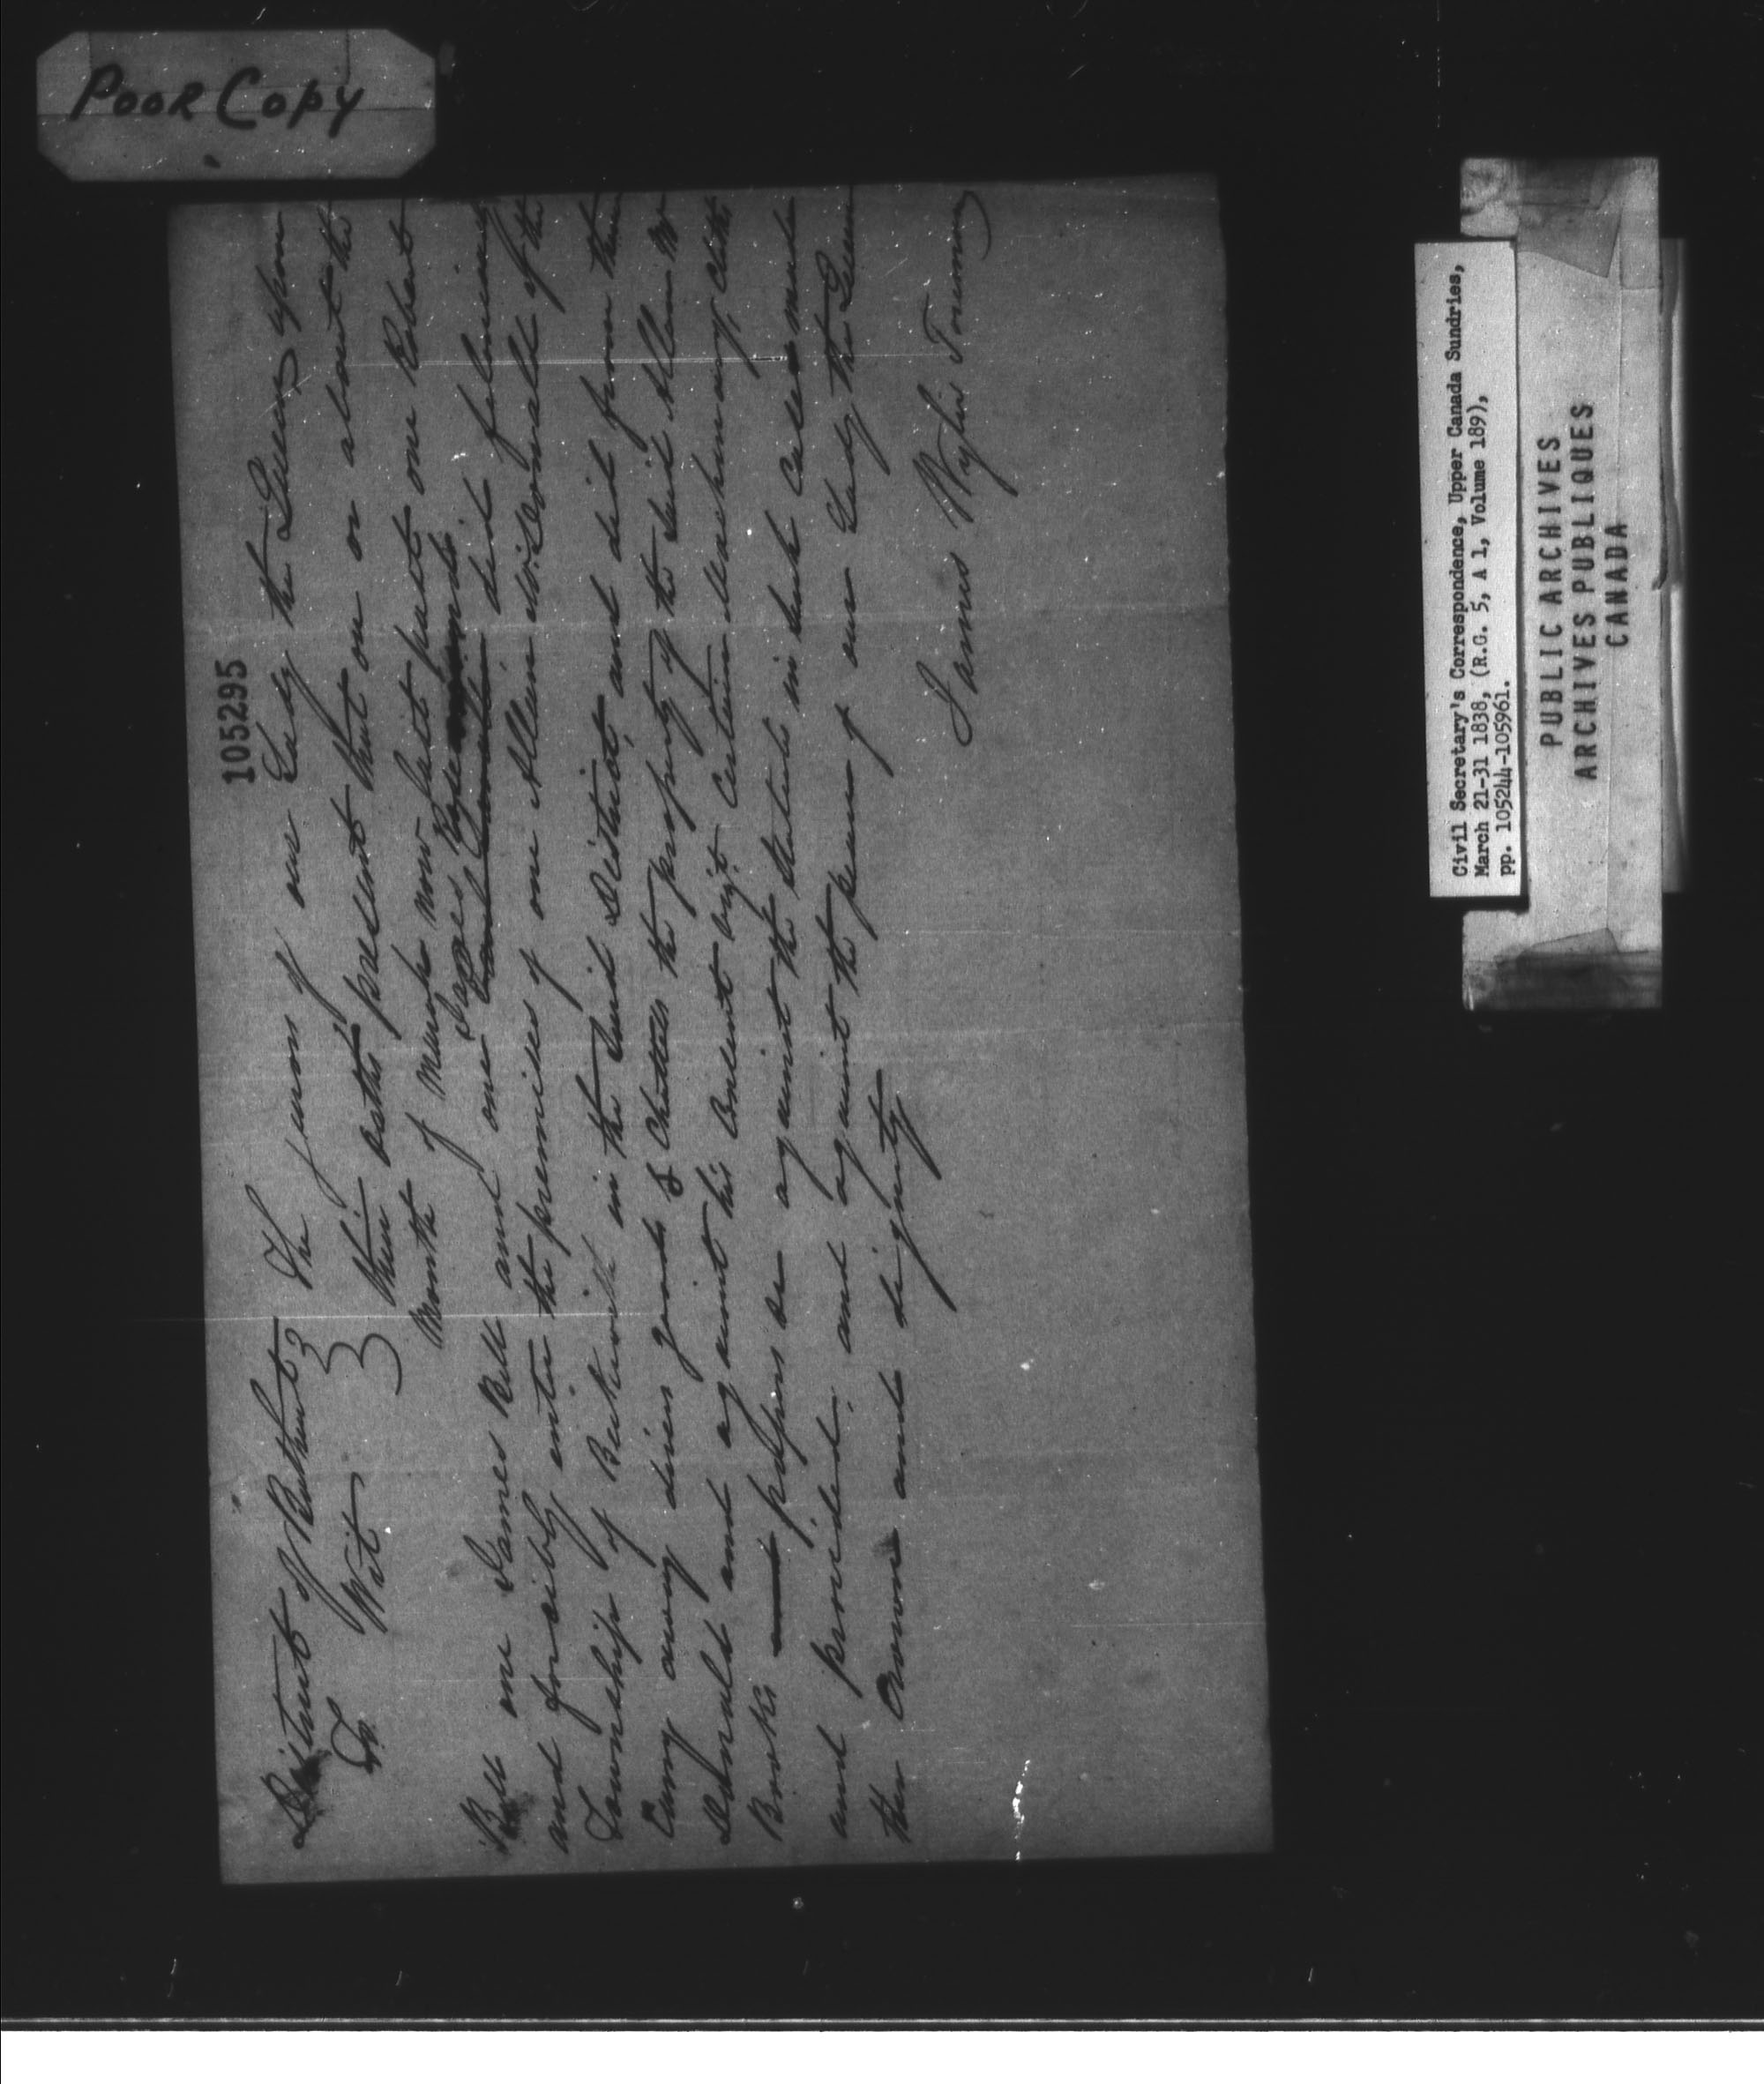 Poor Copy
105295
District of Bathurst The jurors of our Lady the Queen upon
To Wit their oaths present that on or about the
Month of March now last past one Robert
Bell one James Bell and one James did feloniously
and forcibly enter the premises of one Allen McDonald of the
Township of Beckwith in the said District, and did from thence
Carry away divers goods & Chattles the property of the said Allen Mc
Donald and against his Consent viz. Certain leather and
Books papers &c against the Statute in such Case made
and provided. and against the peace of our Lady the Queen
Her Crown and dignity
James Wylie Foreman
Civil Secretary's Correspondence, Upper Canada Sundries,
March 21-31 1838, (R.G. 5, A 1, Volume 189),
pp. 105244-105961.
PUBLIC ARCHIVES
ARCHIVES PUBLIQUES
CANADA